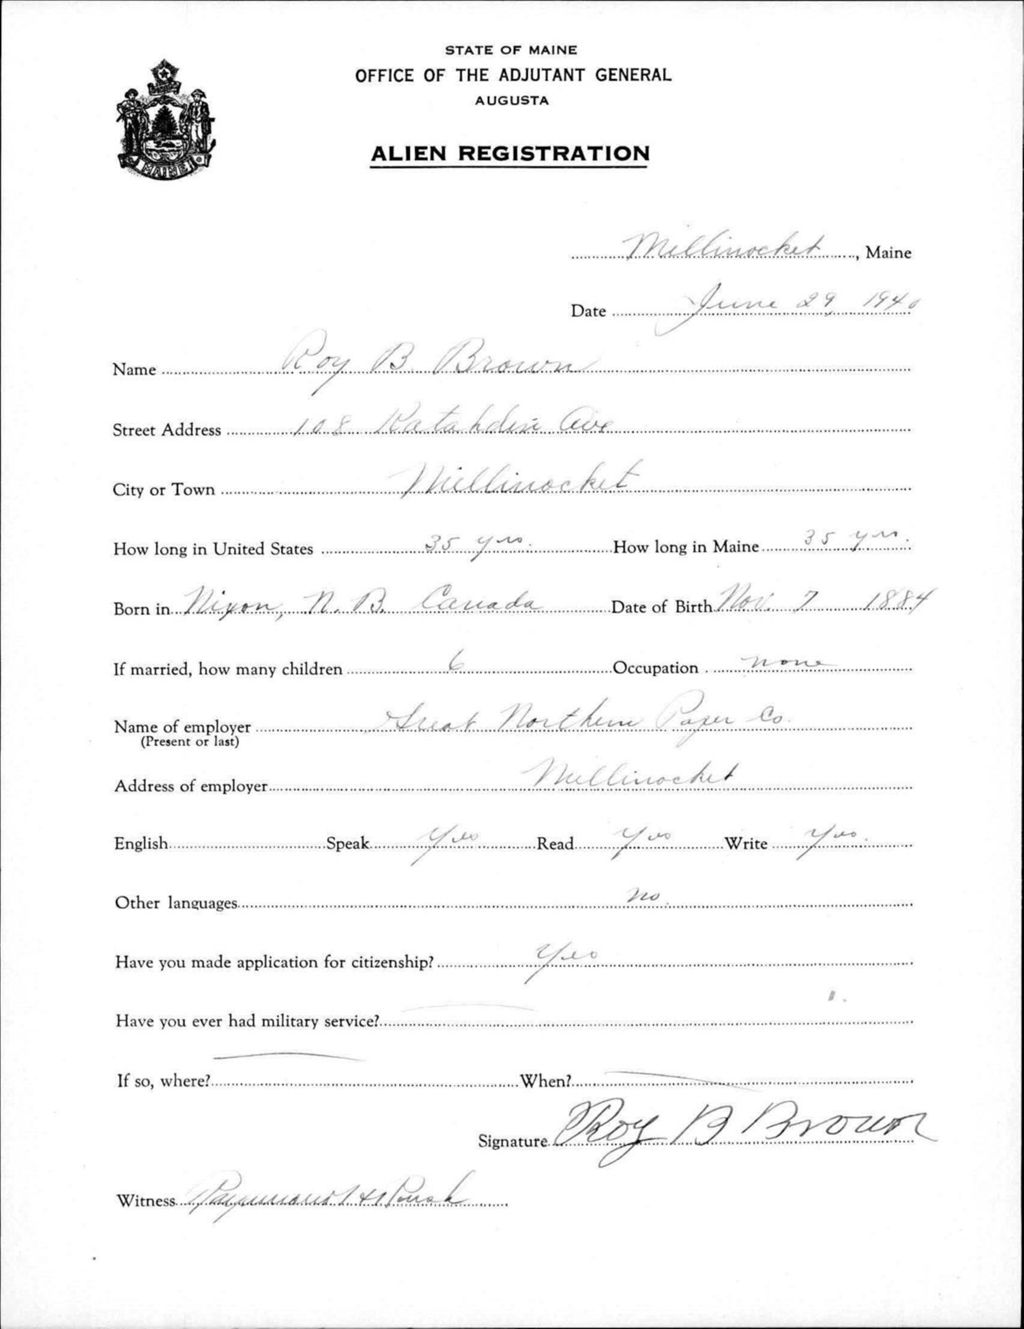 STATE OF MAINE
OFFICE OF THE ADJUTANT GENERAL
AUGUSTA
ALIEN REGISTRATION
MAINE
Millinocket, Maine
Date June 29, 1940
Name Roy B. Brown
Street Address 108 Katahdin Ave
City or Town Millinocket
How long in United States 35 yrs. How long in Maine 35 yrs.
Born in Nixon, N. B. Canada Date of Birth Nov. 7 1884
If married, how many children 6 Occupation none
Name of employer Great Northern Paper Co.
(Present or last)
Address of employer Millinocket
English Speak Yes Read Yes Write Yes.
Other languages no.
Have you made application for citizenship? Yes
Have you ever had military service?
If so, where? When?
Signature Roy B Brown
Witness Raymond H